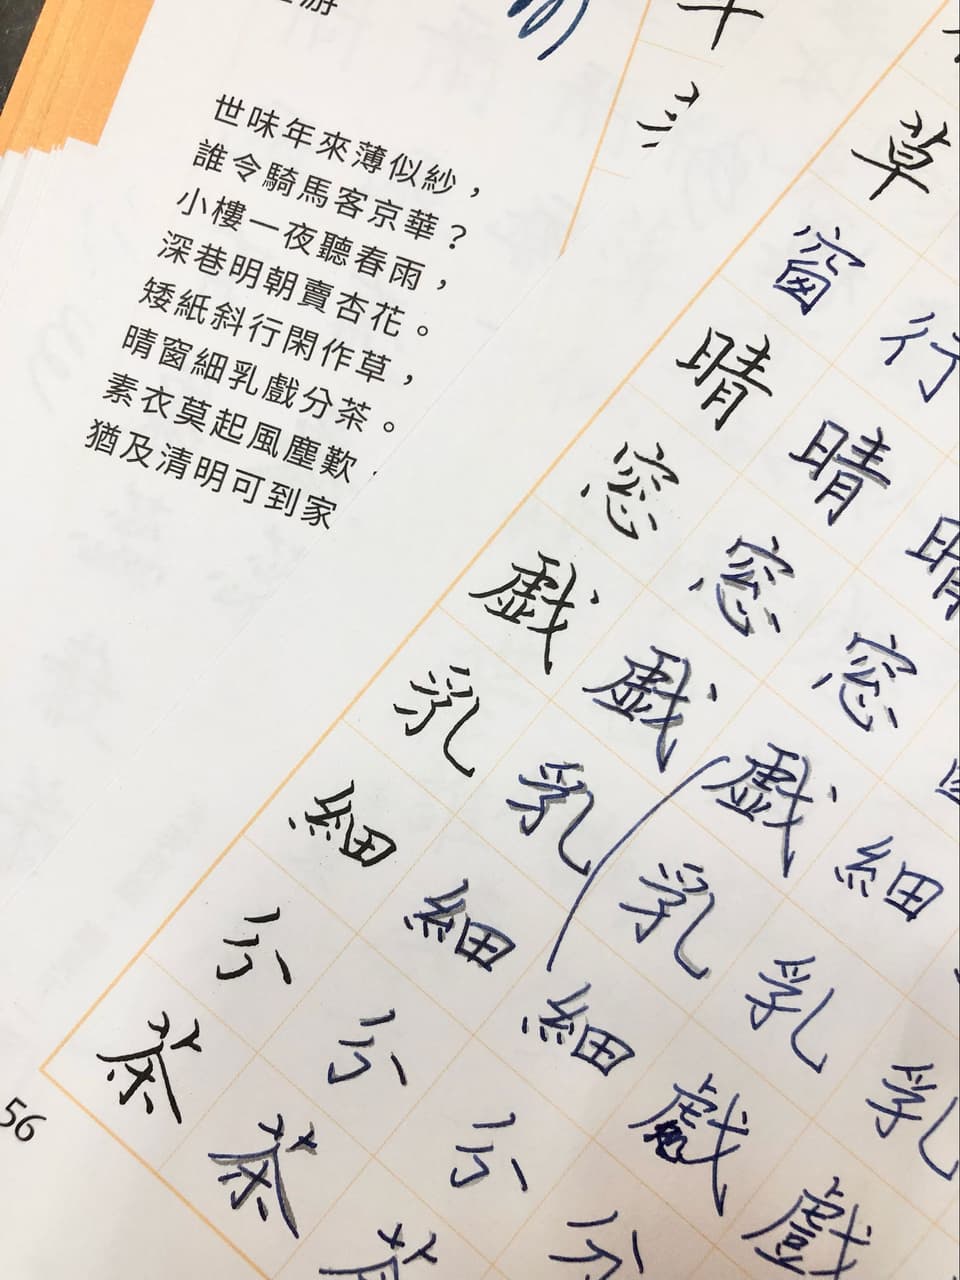 游
世味年來薄似紗，
誰令騎馬客京華？
小樓一夜聽春雨，
深巷明朝賣杏花。
矮紙斜行閑作草，
晴窗細乳戲分茶。
素衣莫起風塵歎，
猶及清明可到家
草窗晴窓戯乳細分茶
行晴窓戯乳細分茶
晴窓戯乳細分茶
細乳戲分
乳戲
56